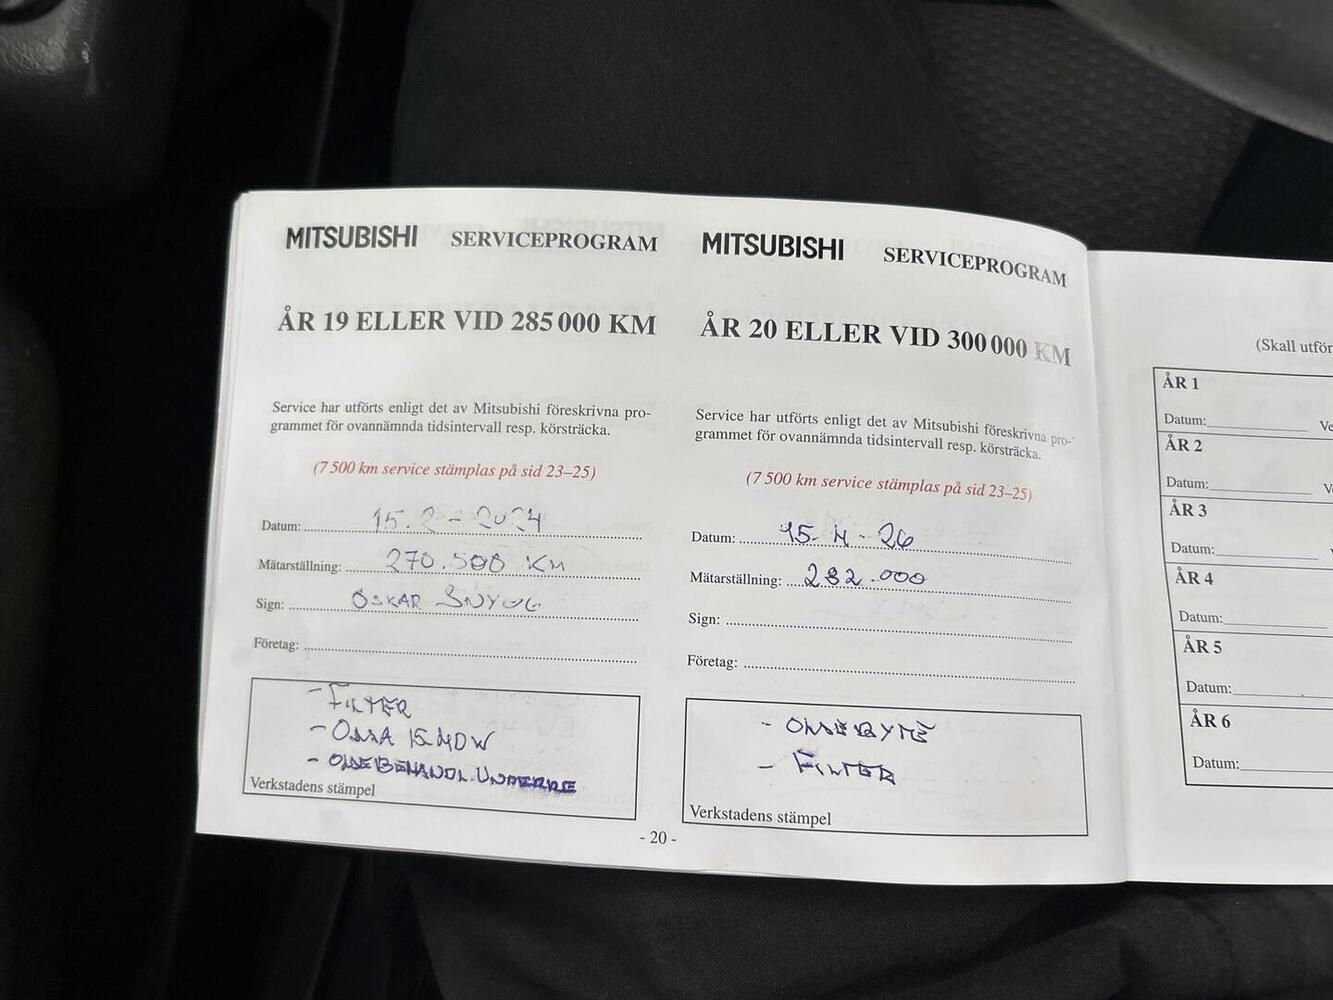 MITSUBISHI SERVICEPROGRAM
ÅR 19 ELLER VID 285 000 KM
Service har utförts enligt det av Mitsubishi föreskrivna pro-
grammet för ovannämnda tidsintervall resp. körsträcka.
(7 500 km service stämplas på sid 23–25)
Datum: 15. 2 - 2024
Mätarställning: 270.500 KM
Sign: OSKAR
Företag:
- FILTER
- OLJA 15.40W
- OLJEBEHANDL. UNDERRE
Verkstadens stämpel
MITSUBISHI SERVICEPROGRAM
ÅR 20 ELLER VID 300 000 KM
Service har utförts enligt det av Mitsubishi föreskrivna pro-
grammet för ovannämnda tidsintervall resp. körsträcka.
(7 500 km service stämplas på sid 23–25)
Datum: 15- 4 - 26
Mätarställning: 282.000
Sign:
Företag:
- OLJEBYTE
- FILTER
Verkstadens stämpel
- 20 -
(Skall utför
ÅR 1
Datum: Ve
ÅR 2
Datum: V
ÅR 3
Datum: V
ÅR 4
Datum:
ÅR 5
Datum:
ÅR 6
Datum: